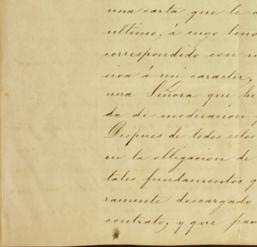 una carta que le
ultimo, á cuyo
correspondido con
siva á mi caracter,
una Señora que he
da de moderación y
Despues de todo estos
en la obligacion de
tales fundamentos q
ramente descargado
contrato, y que par